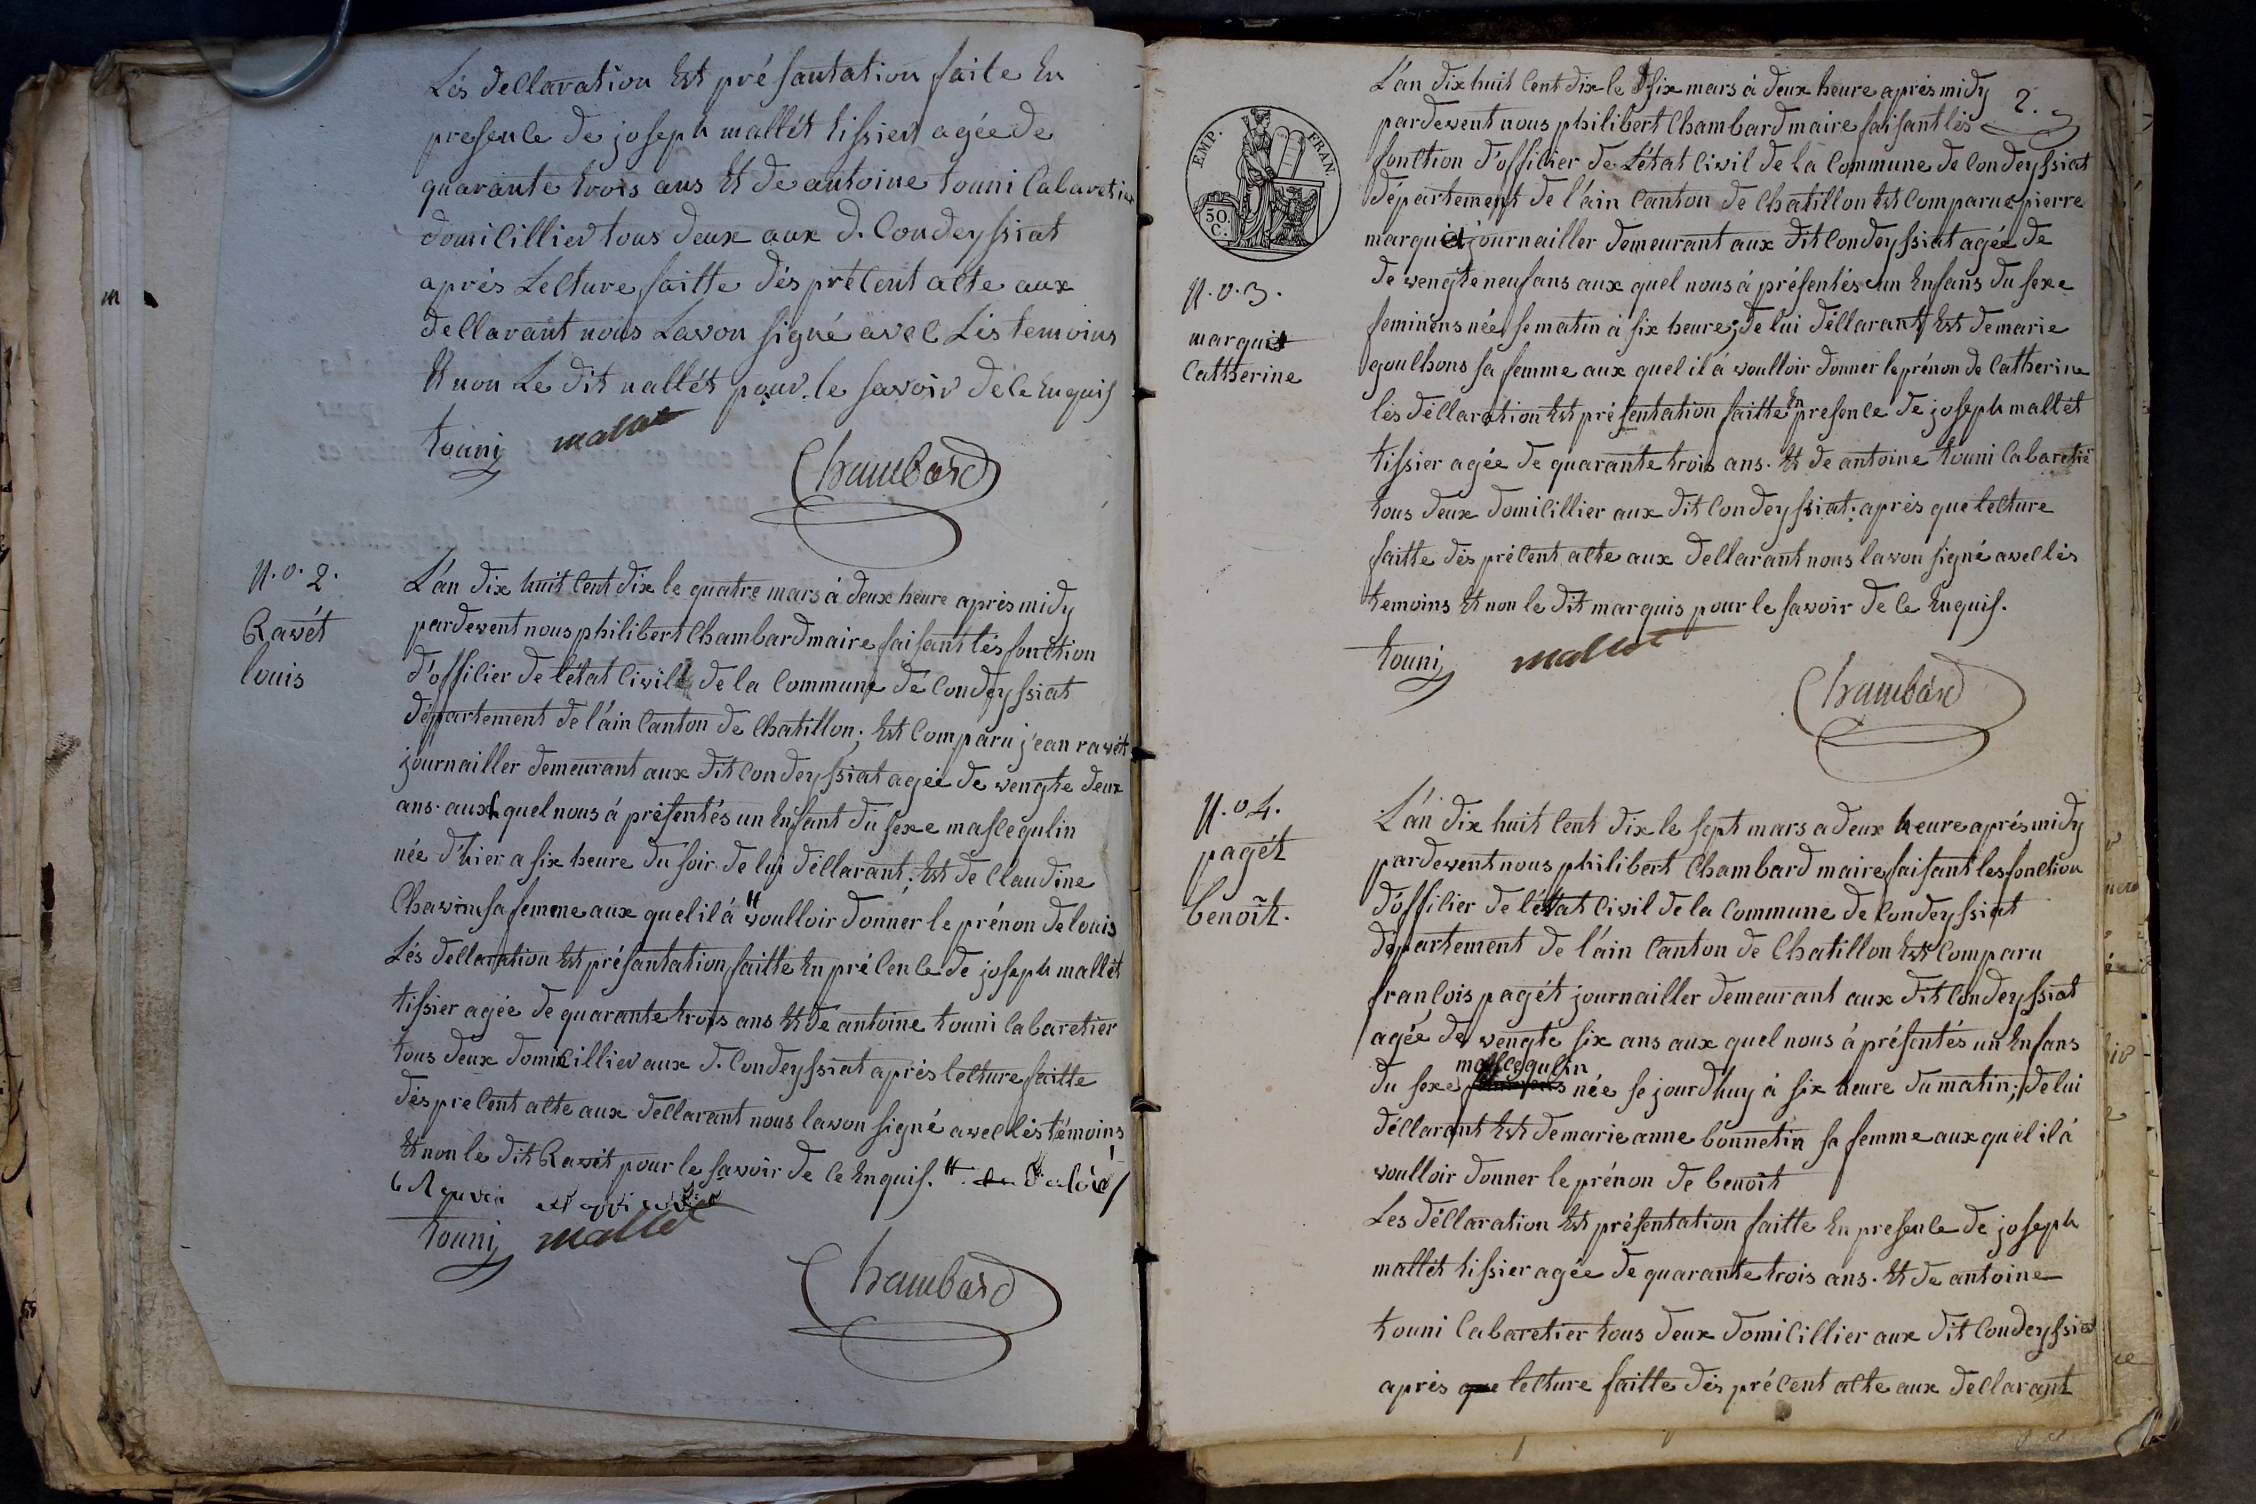 Lés declaration Est présantation faite En
presence de joseph mallét tissier agée de
quarante trois ans Et de antoine touni Cabaretier
domicillier tous deux aux d. Condeyssiat
après Lecture faitte dés précent acte aux
declarant nous Lavon signé avec Lés temoins
Et non Le dit mallét pour le savoir de ce Enquis
touni mallet
Chambard
N.o. 2.
Ravét
louis
L'án dix huit Cent dix le quatre mars á deux heure après midy
pardevent nous philibert Chambard maire faisant lés fonction
d'officier de l'état Civil de la Commune de Condeyssiat
département de l'áin Canton de Chatillon; Est Comparu jean ravét
journailler demeurant aux dit Condeyssiat agée de vengte deux
ans. aux quel nous á présentés un Enfant du sexe mascegulin
née d'hier a six heure du soir de lui déclarant; Est de Claudine
sa femme aux quel il á voulloir donner le prénon de louis
Lés declaration Est présantation faitte En précence de joseph mallét
tissier agée de quarante trois ans Et de antoine touni Cabaretier
tous deux domicillier aux d. Condeyssiat après lecture faitte
dés precent acte aux declarant nous lavon signé avec lés témoins
Et non le dit Ravét pour le savoir de ce Enquis.
touni mallet
Chambard
2.
EMP. FRAN.
50. C.
N.o. 3.
marquis
Catherine
L'an dix huit Cent dix le six mars á deux heure après midy
pardevent nous philibert Chambard maire faisant lés
fonction d'officier de L'état Civil de la Commune de Condeyssiat
département de l'áin Canton de Chatillon Est Comparue pierre
marquis journailler demeurant aux dit Condeyssiat agée de
de vengte neuf ans aux quel nous á présentés un Enfans du sexe
feminens née se matin á six heure; de lui déclarant Est de marie
gouchons sa femme aux quel il á voulloir donner le prénon de Catherine
lés déclaration Est présentation faitte En presence de joseph mallét
tissier agée de quarante trois ans. Et de antoine touni Cabaretié
tous deux domicillier aux dit Condeyssiat; après que lecture
faitte dés précent acte aux declarant nous lavon signé avec lés
temoins Et non le dit marquis pour le savoir de ce Enquis.
touni mallet
Chambard
N.o 4.
pagét
benoît.
L'án dix huit Cent dix le sept mars a deux heure après midy
pardevent nous philibert Chambard maire faisant les fonction
d'officier de l'état Civil de la Commune de Condeyssiat
département de l'áin Canton de Chatillon Est Comparu
françois pagét journailler demeurant aux dit Condeyssiat
agée de vengte six ans aux quel nous á présentés un Enfans
mascegulin
du sexe née se jourdhuy á six heure du matin; de lui
déclarant Est de marie anne bonnetin sa femme aux quel il á
voulloir donner le prénon de benoît
Les déclaration Est présentation faitte En presence de joseph
mallét tissier agée de quarante trois ans. Et de antoine
touni Cabaretier tous deux domicillier aux dit Condeyssiat
après que lecture faitte dés précent acte aux declarant